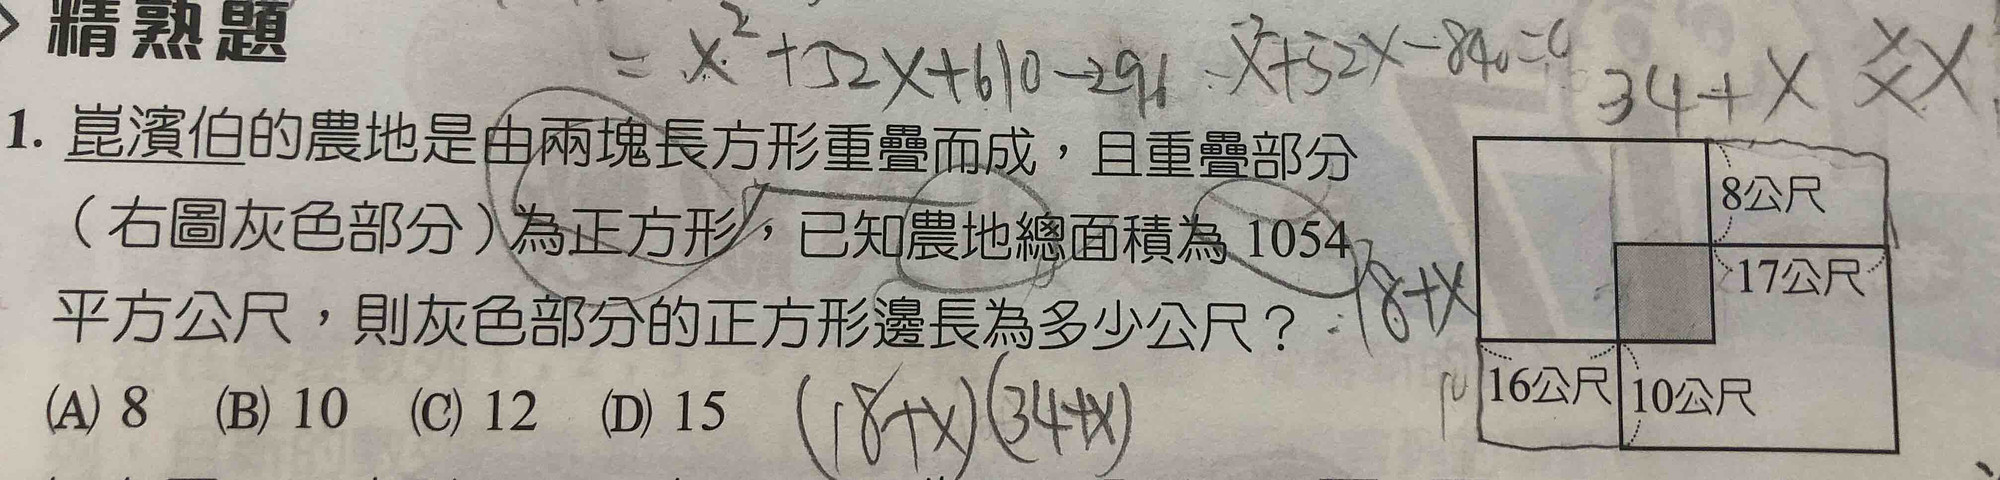 精熟題
= x² + 52x + 610 - 296
x² + 52x - 840 = 0
34 + x
1. 崑濱伯的農地是由兩塊長方形重疊而成，且重疊部分
（右圖灰色部分）為正方形，已知農地總面積為 1054
平方公尺，則灰色部分的正方形邊長為多少公尺？
(A) 8 (B) 10 (C) 12 (D) 15
(18+x)(34+x)
8公尺
17公尺
18+x
16公尺
10公尺
10